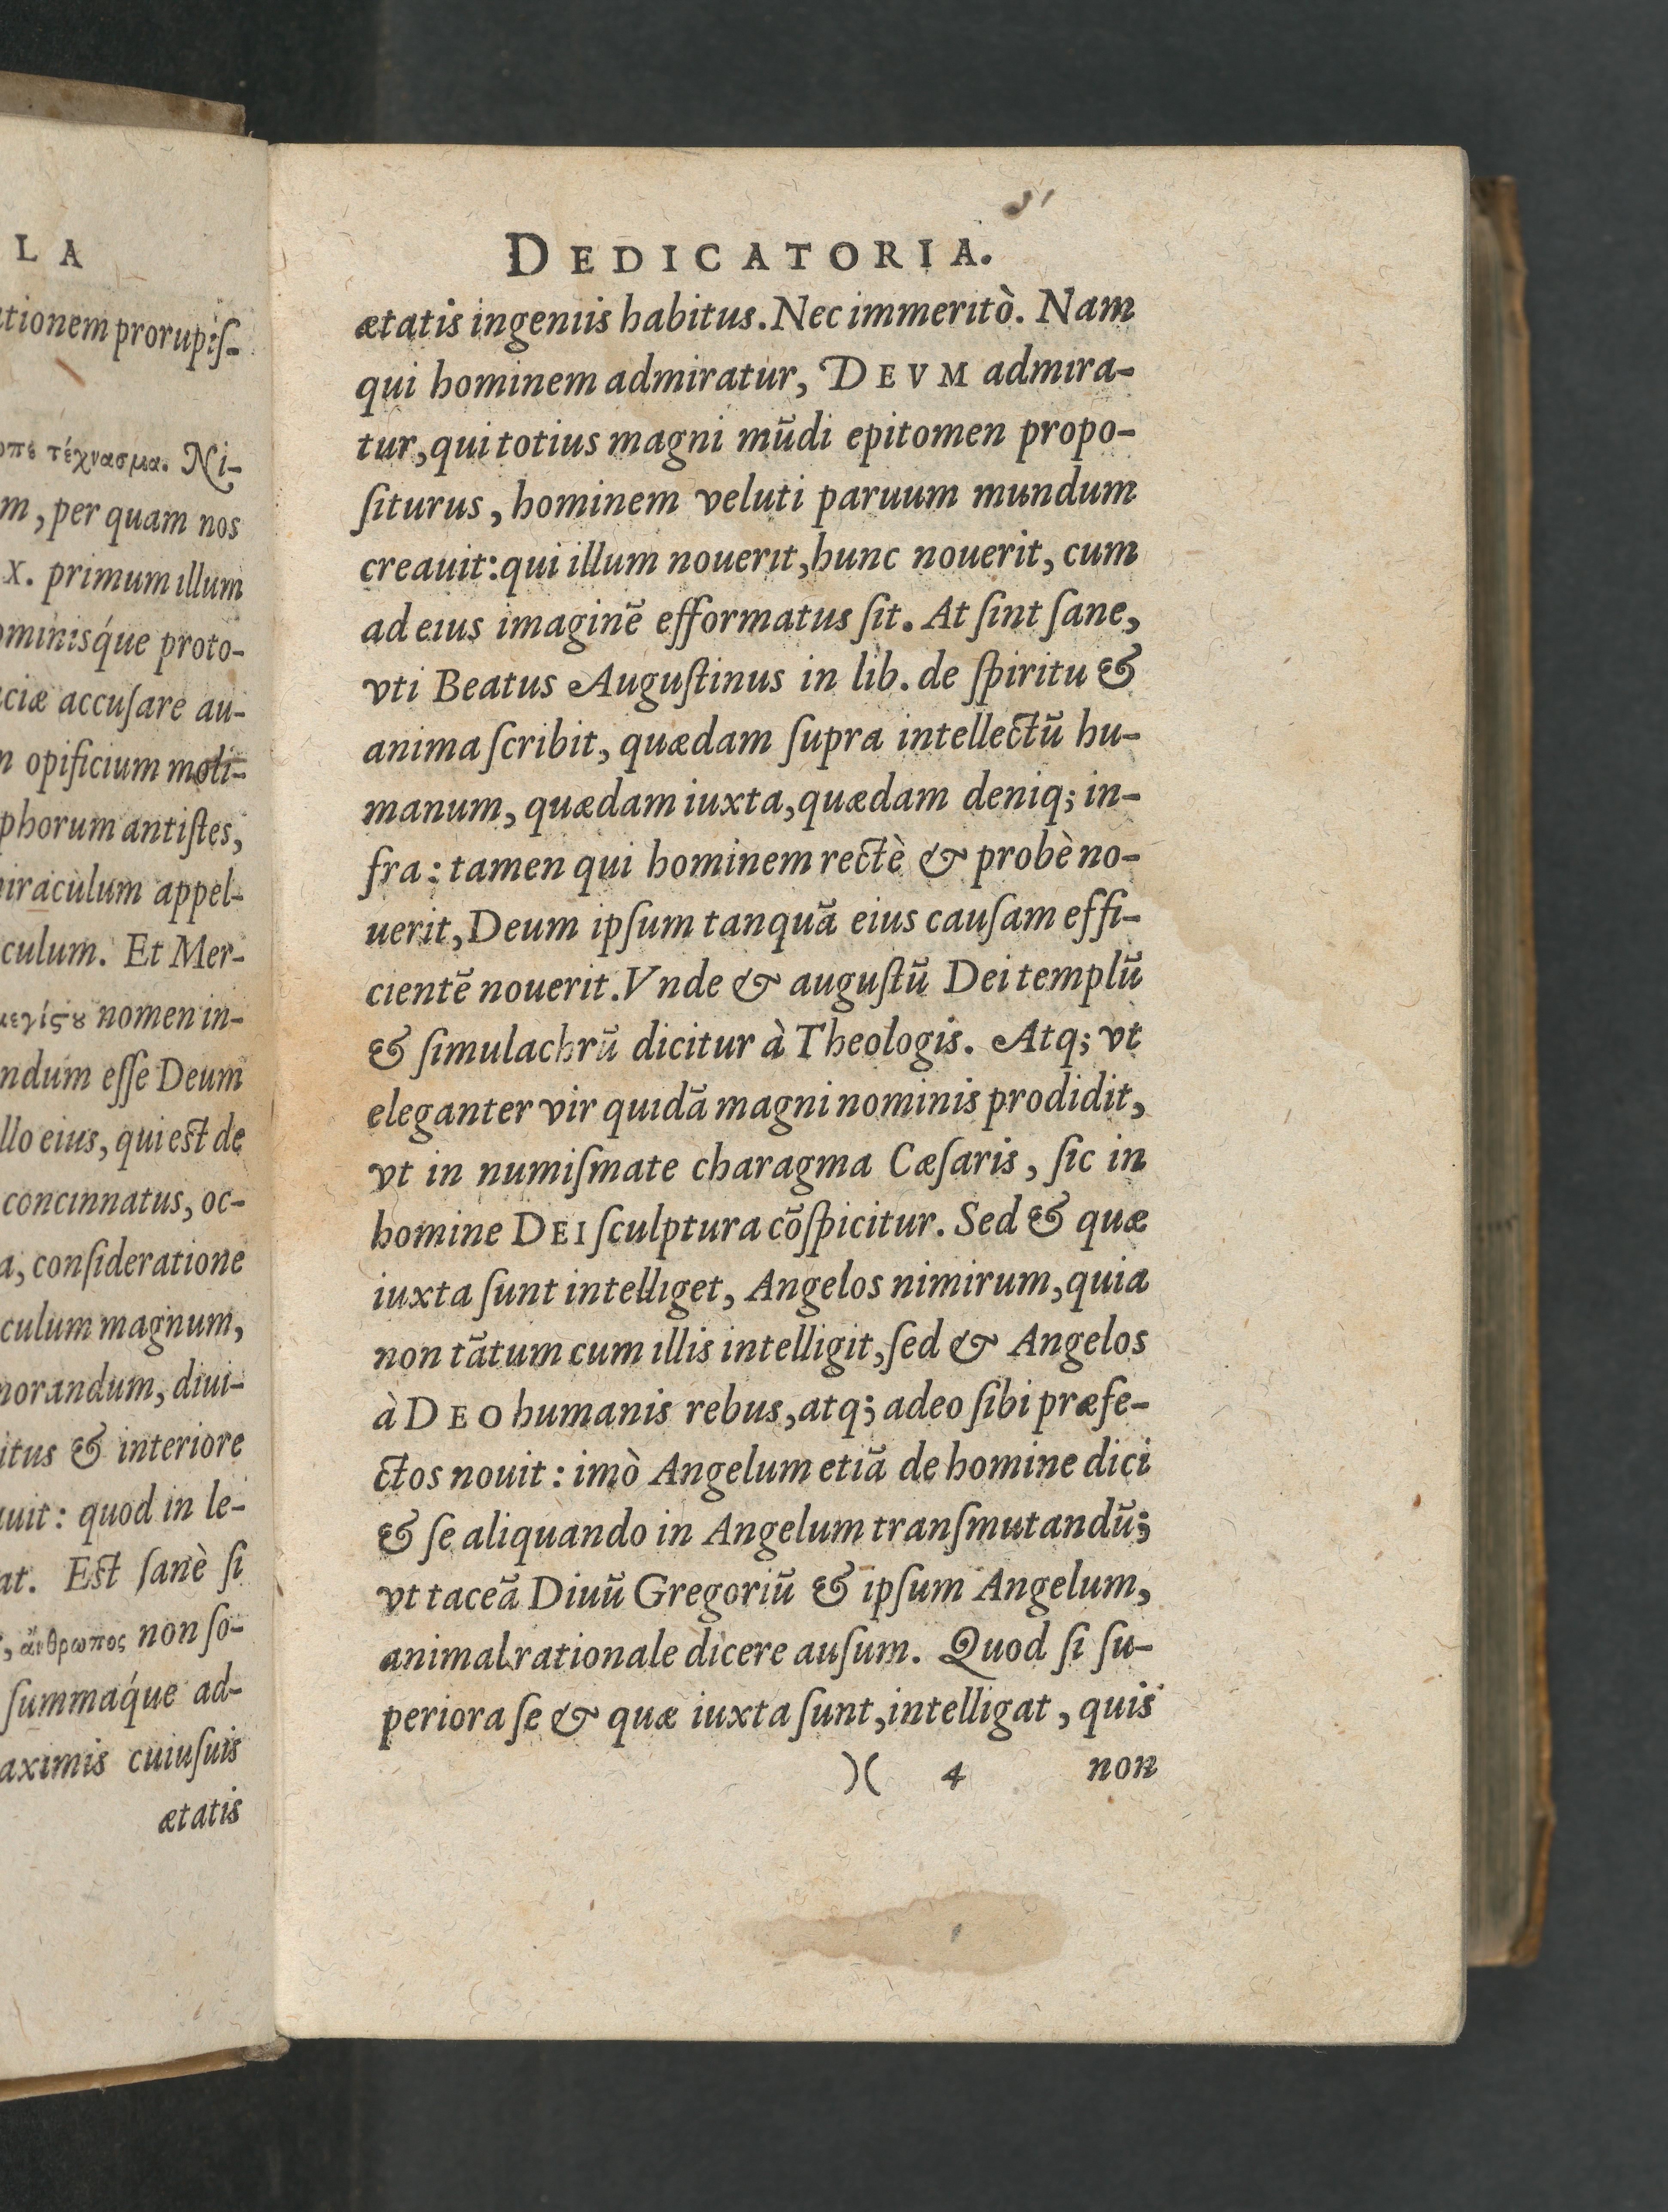 LA
tionem prorupiſ-
τέχνασμα. Ni-
m, per quam nos
X. primum illum
ominisq́ue proto-
ciæ accuſare au-
n opificium moli-
phorum antiſtes,
miraculum appel-
culum. Et Mer-
nomen in-
ndum eſſe Deum
llo eius, qui est de
concinnatus, oc-
a, conſideratione
culum magnum,
morandum, diui-
itus & interiore
uit: quod in le-
at. Est ſanè ſi
, ἄνθρωπος non ſo-
ſummaq́ue ad-
aximis cuiuſuis
ætatis
DEDICATORIA.
ætatis ingeniis habitus. Nec immeritò. Nam
qui hominem admiratur, DEVM admira-
tur, qui totius magni mūdi epitomen propo-
ſiturus, hominem veluti paruum mundum
creauit: qui illum nouerit, hunc nouerit, cum
ad eius imaginē efformatus ſit. At ſint ſane,
vti Beatus Auguſtinus in lib. de ſpiritu &
anima ſcribit, quædam ſupra intellectū hu-
manum, quædam iuxta, quædam deniq; in-
fra: tamen qui hominem rectè & probè no-
uerit, Deum ipſum tanquā eius cauſam effi-
cientē nouerit. Vnde & auguſtū Dei templū
& ſimulachrū dicitur à Theologis. Atq; vt
eleganter vir quidā magni nominis prodidit,
vt in numiſmate charagma Cæſaris, ſic in
homine DEI ſculptura cōſpicitur. Sed & quæ
iuxta ſunt intelliget, Angelos nimirum, quia
non tātum cum illis intelligit, ſed & Angelos
à DEO humanis rebus, atq; adeo ſibi præfe-
ctos nouit: imò Angelum etiā de homine dici
& ſe aliquando in Angelum tranſmutandū;
vt taceā Diuū Gregoriū & ipſum Angelum,
animal rationale dicere auſum. Quod ſi ſu-
periora ſe & quæ iuxta ſunt, intelligat, quis
)( 4 non